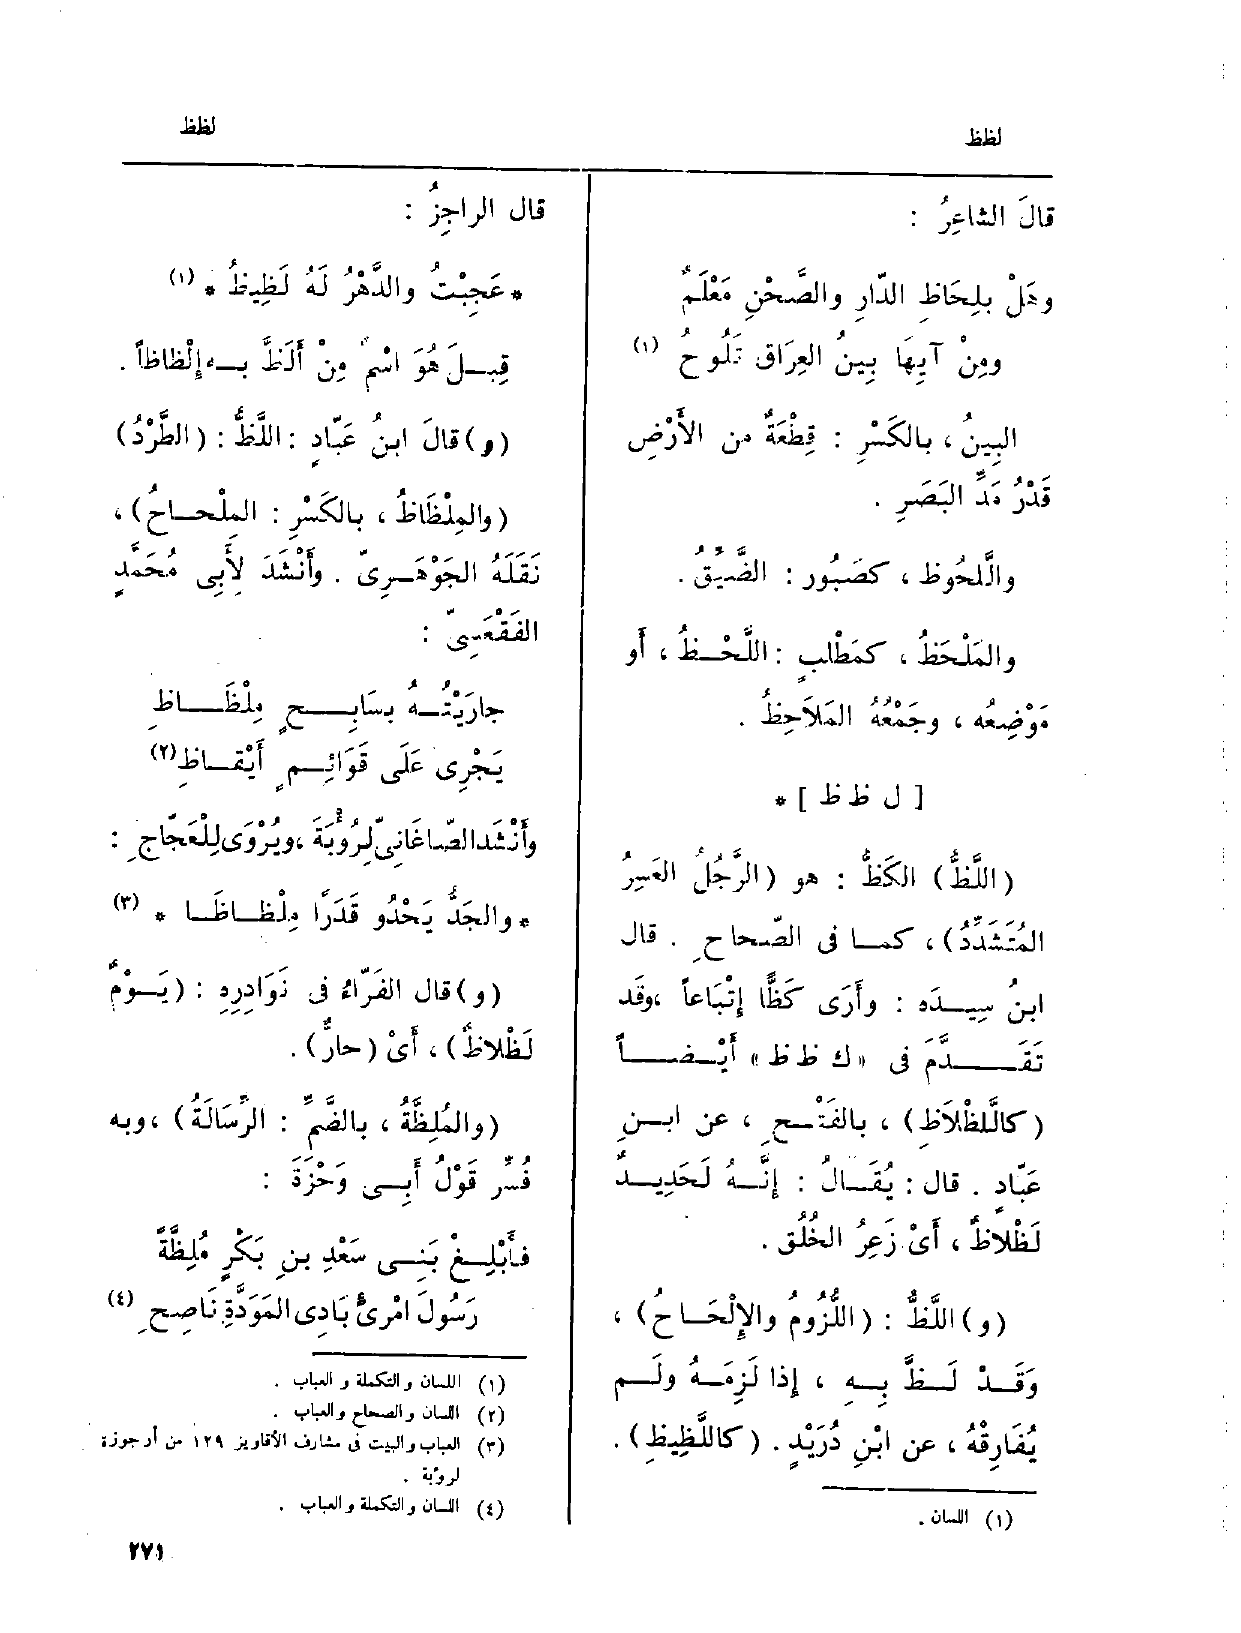 لظظ
لظظ
قالَ الشاعِرُ :
وهَلْ بلِحَاظِ الدّارِ والصَّحْنِ مَعْلَمٌ
ومِنْ آيِهَا بِينُ العِرَاقِ تَلُوحُ (١)
البِينُ ، بالكَسْرِ : قِطْعَةٌ من الأَرْضِ
قَدْرُ مَدِّ البَصَرِ .
والَّلحُوظ ، كصَبُور : الضَّيِّقُ .
والمَلْحَظُ ، كمَطْلبٍ : اللَّحْـظُ ، أَو
مَوْضِعُه ، وجَمْعُهُ المَلاَحِظُ .
[ ل ظ ظ ] *
(اللَّظُّ) الكَظُّ : هو (الرَّجُلُ العَسِرُ
المُتَشَدِّدُ) ، كمـا فى الصّحاحِ . قال
ابنُ سِيـدَه : وأَرَى كَظًّا إِتْبَاعاً ،وقد
تَقَـــدَّمَ فى «ك ظ ظ» أَيْـضـــاً
(كاللَّظْلاَظِ) ، بالفَتْـحِ ، عن ابـنِ
عَبّادٍ . قال : يُقَــالُ : إِنَّــهُ لَحَدِيــدٌ
لَظْلاظٌ ، أَىْ زَعِرُ الخُلُق .
(و) اللَّظُّ : (اللُّزُومُ والإِلْحَـاحُ) ،
وَقَـدْ لَـظَّ بِـهِ ، إِذا لَزِمَـهُ ولَـم
يُفَارِقْهُ ، عن ابْنِ دُرَيْدٍ . (كاللَّظِيظِ) .
(١) اللسان .
قال الراجِزُ :
* عَجِبْتُ والدَّهْرُ لَهُ لَظِيظُ * (١)
قِيـلَ هُوَ اسْمٌ مِنْ أَلَظَّ بـه إِلْظاظاً .
(و) قالَ ابنُ عَبّادٍ : اللَّظُّ : (الطَّرْدُ)
(والمِلْظَاظُ ، بالكَسْرِ : المِلْحـاحُ) ،
نَقَلَهُ الجَوْهَـرِىّ . وأَنْشَدَ لِأَبِى مُحَمَّدٍ
الفَقْعَسِىّ :
جارَيْتُــهُ بسَابِـــحٍ مِلْظَـــاظِ
يَجْرِى عَلَى قَوَائِـمٍ أَيْقـاظِ (٢)
وأَنْشَد الصّاغَانِىّ لِرُؤبَةَ ،ويُرْوَى لِلْعَجّاجِ :
* والجَدُّ يَحْدُو قَدَرًا مِلْظـاظَـا * (٣)
(و) قال الفَرّاءُ فى نَوَادِرِهِ : (يَـوْمٌ
لَظْلاظٌ) ، أَىْ (حارٌّ) .
(والمُلِظَّةُ ، بالضَّمِّ : الرِّسَالَةُ) ، وبه
فُسِّر قَوْلُ أَبِـى وَجْزَةَ :
فأَبْلِـغْ بَنِـى سَعْدِ بنِ بَكْرٍ مُلِظَّةً
رَسُولَ امْرِئٍ بَادِى المَوَدَّةِ نَاصِحِ (٤)
(١) اللسان والتكملة و العباب .
(٢) اللسان والصحاح والعباب .
(٣) العباب والبيت فى مشارف الأقاويز ١٢٩ من أرجوزة
لرؤبة .
(٤) اللسان والتكملة والعباب .
٢٧١